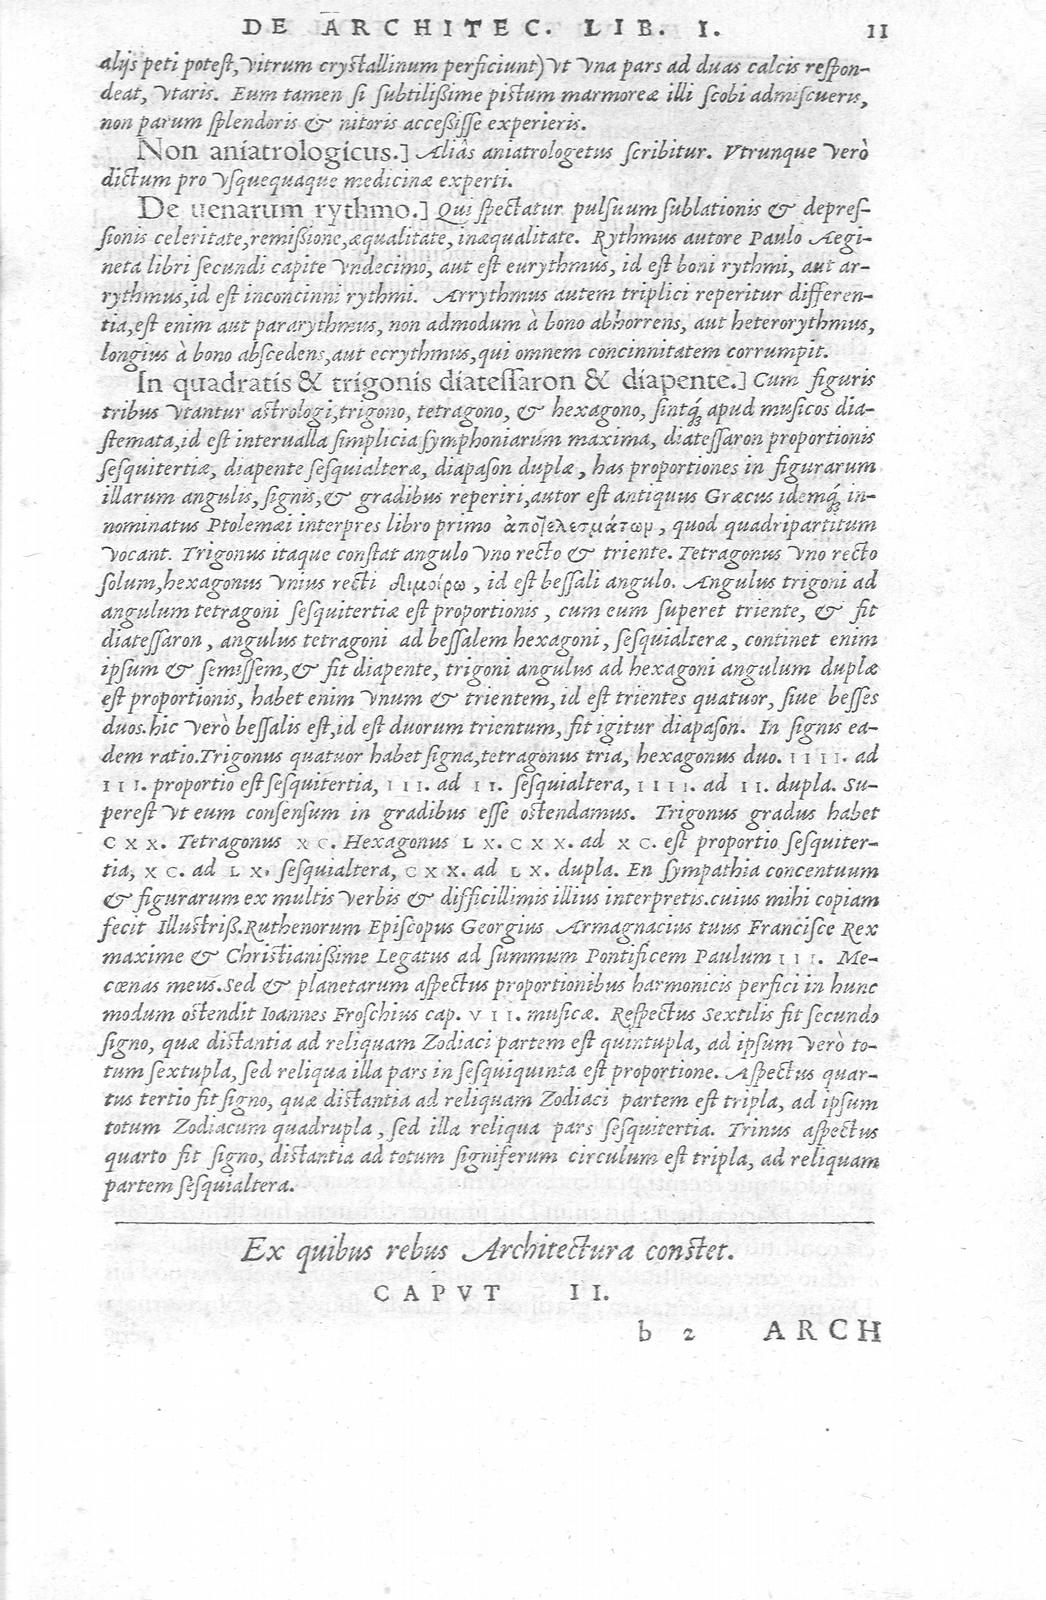 DE ARCHITEC. LIB. I. 11
alijs peti potest, vitrum crystallinum perficiunt) vt vna pars ad duas calcis respon-
deat, vtaris. Eum tamen si subtilißime pistum marmoreæ illi scobi admiscueris,
non parum splendoris & nitoris acceßisse experieris.
Non aniatrologicus.] Aliâs aniatrologetus scribitur. Vtrunque verò
dictum pro vsquequaque medicinæ experti.
De uenarum rythmo.] Qui spectatur pulsuum sublationis & depres-
sionis celeritate, remißione, æqualitate, inæqualitate. Rythmus autore Paulo Aegi-
neta libri secundi capite vndecimo, aut est eurythmus, id est boni rythmi, aut ar-
rythmus, id est inconcinni rythmi. Arrythmus autem triplici reperitur differen-
tia, est enim aut pararythmus, non admodum à bono abhorrens, aut heterorythmus,
longius à bono abscedens, aut ecrythmus, qui omnem concinnitatem corrumpit.
In quadratis & trigonis diatessaron & diapente.] Cum figuris
tribus vtantur astrologi, trigono, tetragono, & hexagono, sintq́; apud musicos dia-
stemata, id est interualla simplicia symphoniarum maxima, diatessaron proportionis
sesquitertiæ, diapente sesquialteræ, diapason duplæ, has proportiones in figurarum
illarum angulis, signis, & gradibus reperiri, autor est antiquus Græcus idemq́; in-
nominatus Ptolemæi interpres libro primo ἀποτελεσμάτωμ, quod quadripartitum
vocant. Trigonus itaque constat angulo vno recto & triente. Tetragonus vno recto
solum, hexagonus vnius recti διμοίρω, id est bessali angulo. Angulus trigoni ad
angulum tetragoni sesquitertiæ est proportionis, cum eum superet triente, & fit
diatessaron, angulus tetragoni ad bessalem hexagoni, sesquialteræ, continet enim
ipsum & semissem, & fit diapente, trigoni angulus ad hexagoni angulum duplæ
est proportionis, habet enim vnum & trientem, id est trientes quatuor, siue besses
duos. hic verò bessalis est, id est duorum trientum, fit igitur diapason. In signis ea-
dem ratio. Trigonus quatuor habet signa, tetragonus tria, hexagonus duo. IIII. ad
III. proportio est sesquitertia, III. ad II. sesquialtera, IIII. ad II. dupla. Su-
perest vt eum consensum in gradibus esse ostendamus. Trigonus gradus habet
CXX. Tetragonus XC. Hexagonus LX. CXX. ad XC. est proportio sesquiter-
tia, XC. ad LX. sesquialtera, CXX. ad LX. dupla. En sympathia concentuum
& figurarum ex multis verbis & difficillimis illius interpretis. cuius mihi copiam
fecit Illustriß. Ruthenorum Episcopus Georgius Armagnacius tuus Francisce Rex
maxime & Christianißime Legatus ad summum Pontificem Paulum III. Me-
cœnas meus. Sed & planetarum aspectus proportionibus harmonicis perfici in hunc
modum ostendit Ioannes Froschius cap. VII. musicæ. Respectus Sextilis fit secundo
signo, quæ distantia ad reliquam Zodiaci partem est quintupla, ad ipsum verò to-
tum sextupla, sed reliqua illa pars in sesquiquinta est proportione. Aspectus quar-
tus tertio fit signo, quæ distantia ad reliquam Zodiaci partem est tripla, ad ipsum
totum Zodiacum quadrupla, sed illa reliqua pars sesquitertia. Trinus aspectus
quarto fit signo, distantia ad totum signiferum circulum est tripla, ad reliquam
partem sesquialtera.
Ex quibus rebus Architectura constet.
CAPVT II.
b 2 ARCH